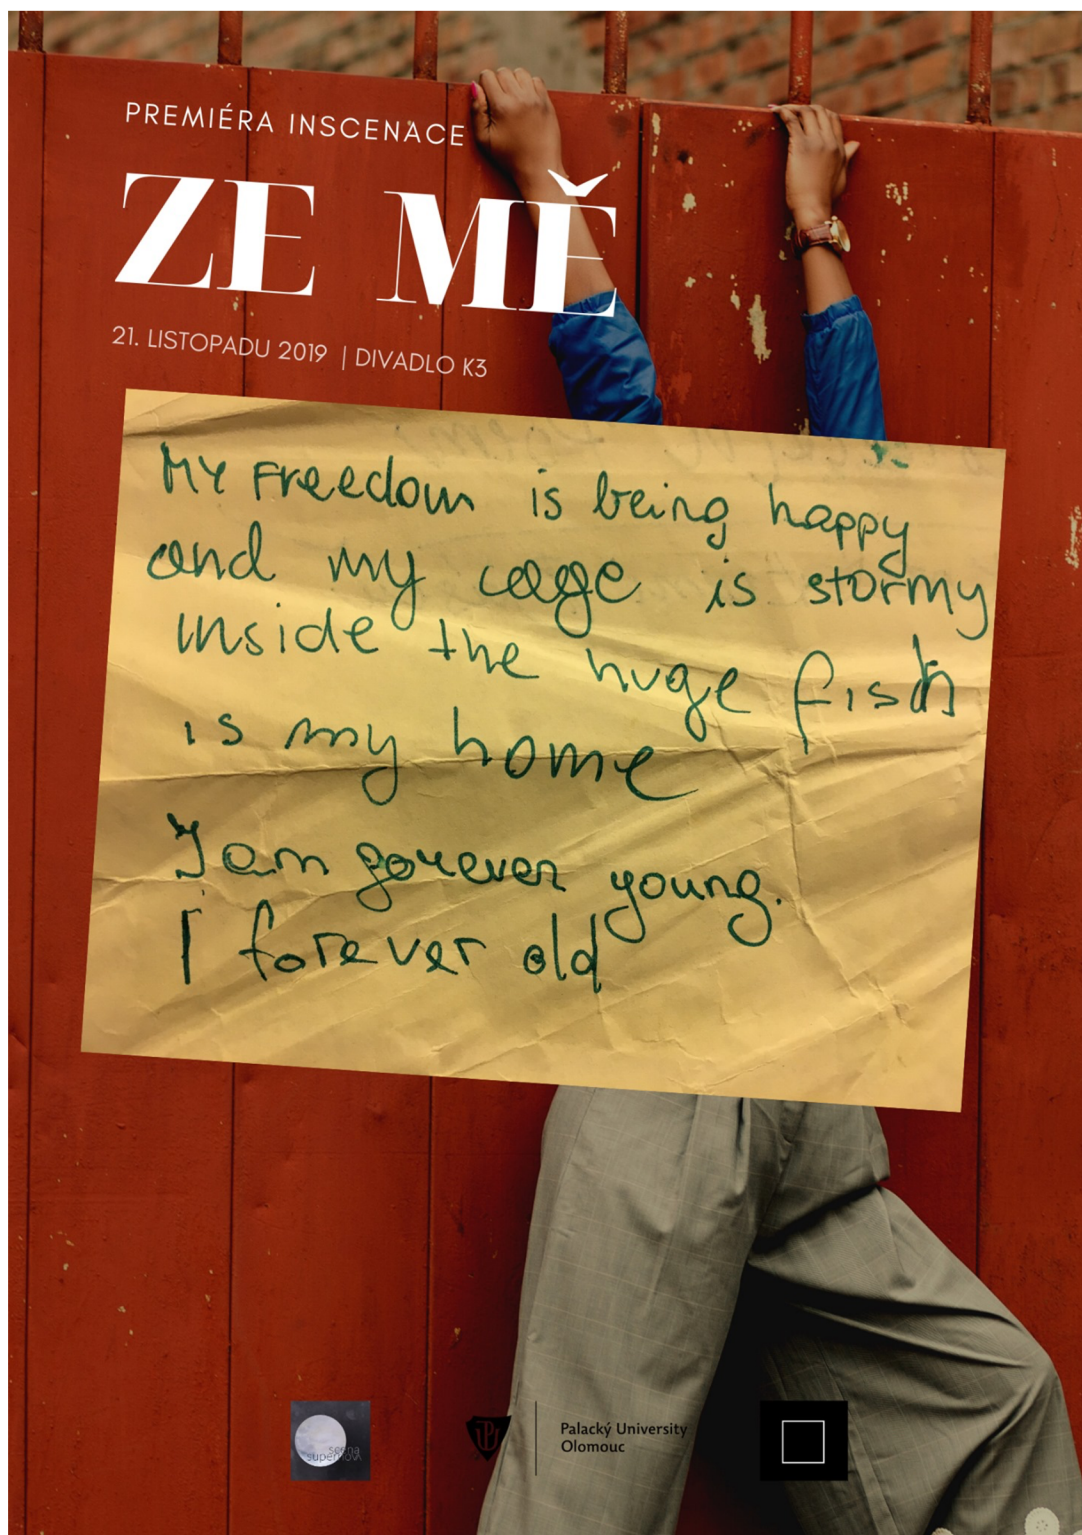 PREMIÉRA INSCENACE
ZE MĚ
21. LISTOPADU 2019 | DIVADLO K3
My Freedom is being happy
and my cage is stormy
inside the huge fish
is my home
I am forever young.
I forever old
scena
supernova
UP
Palacký University
Olomouc